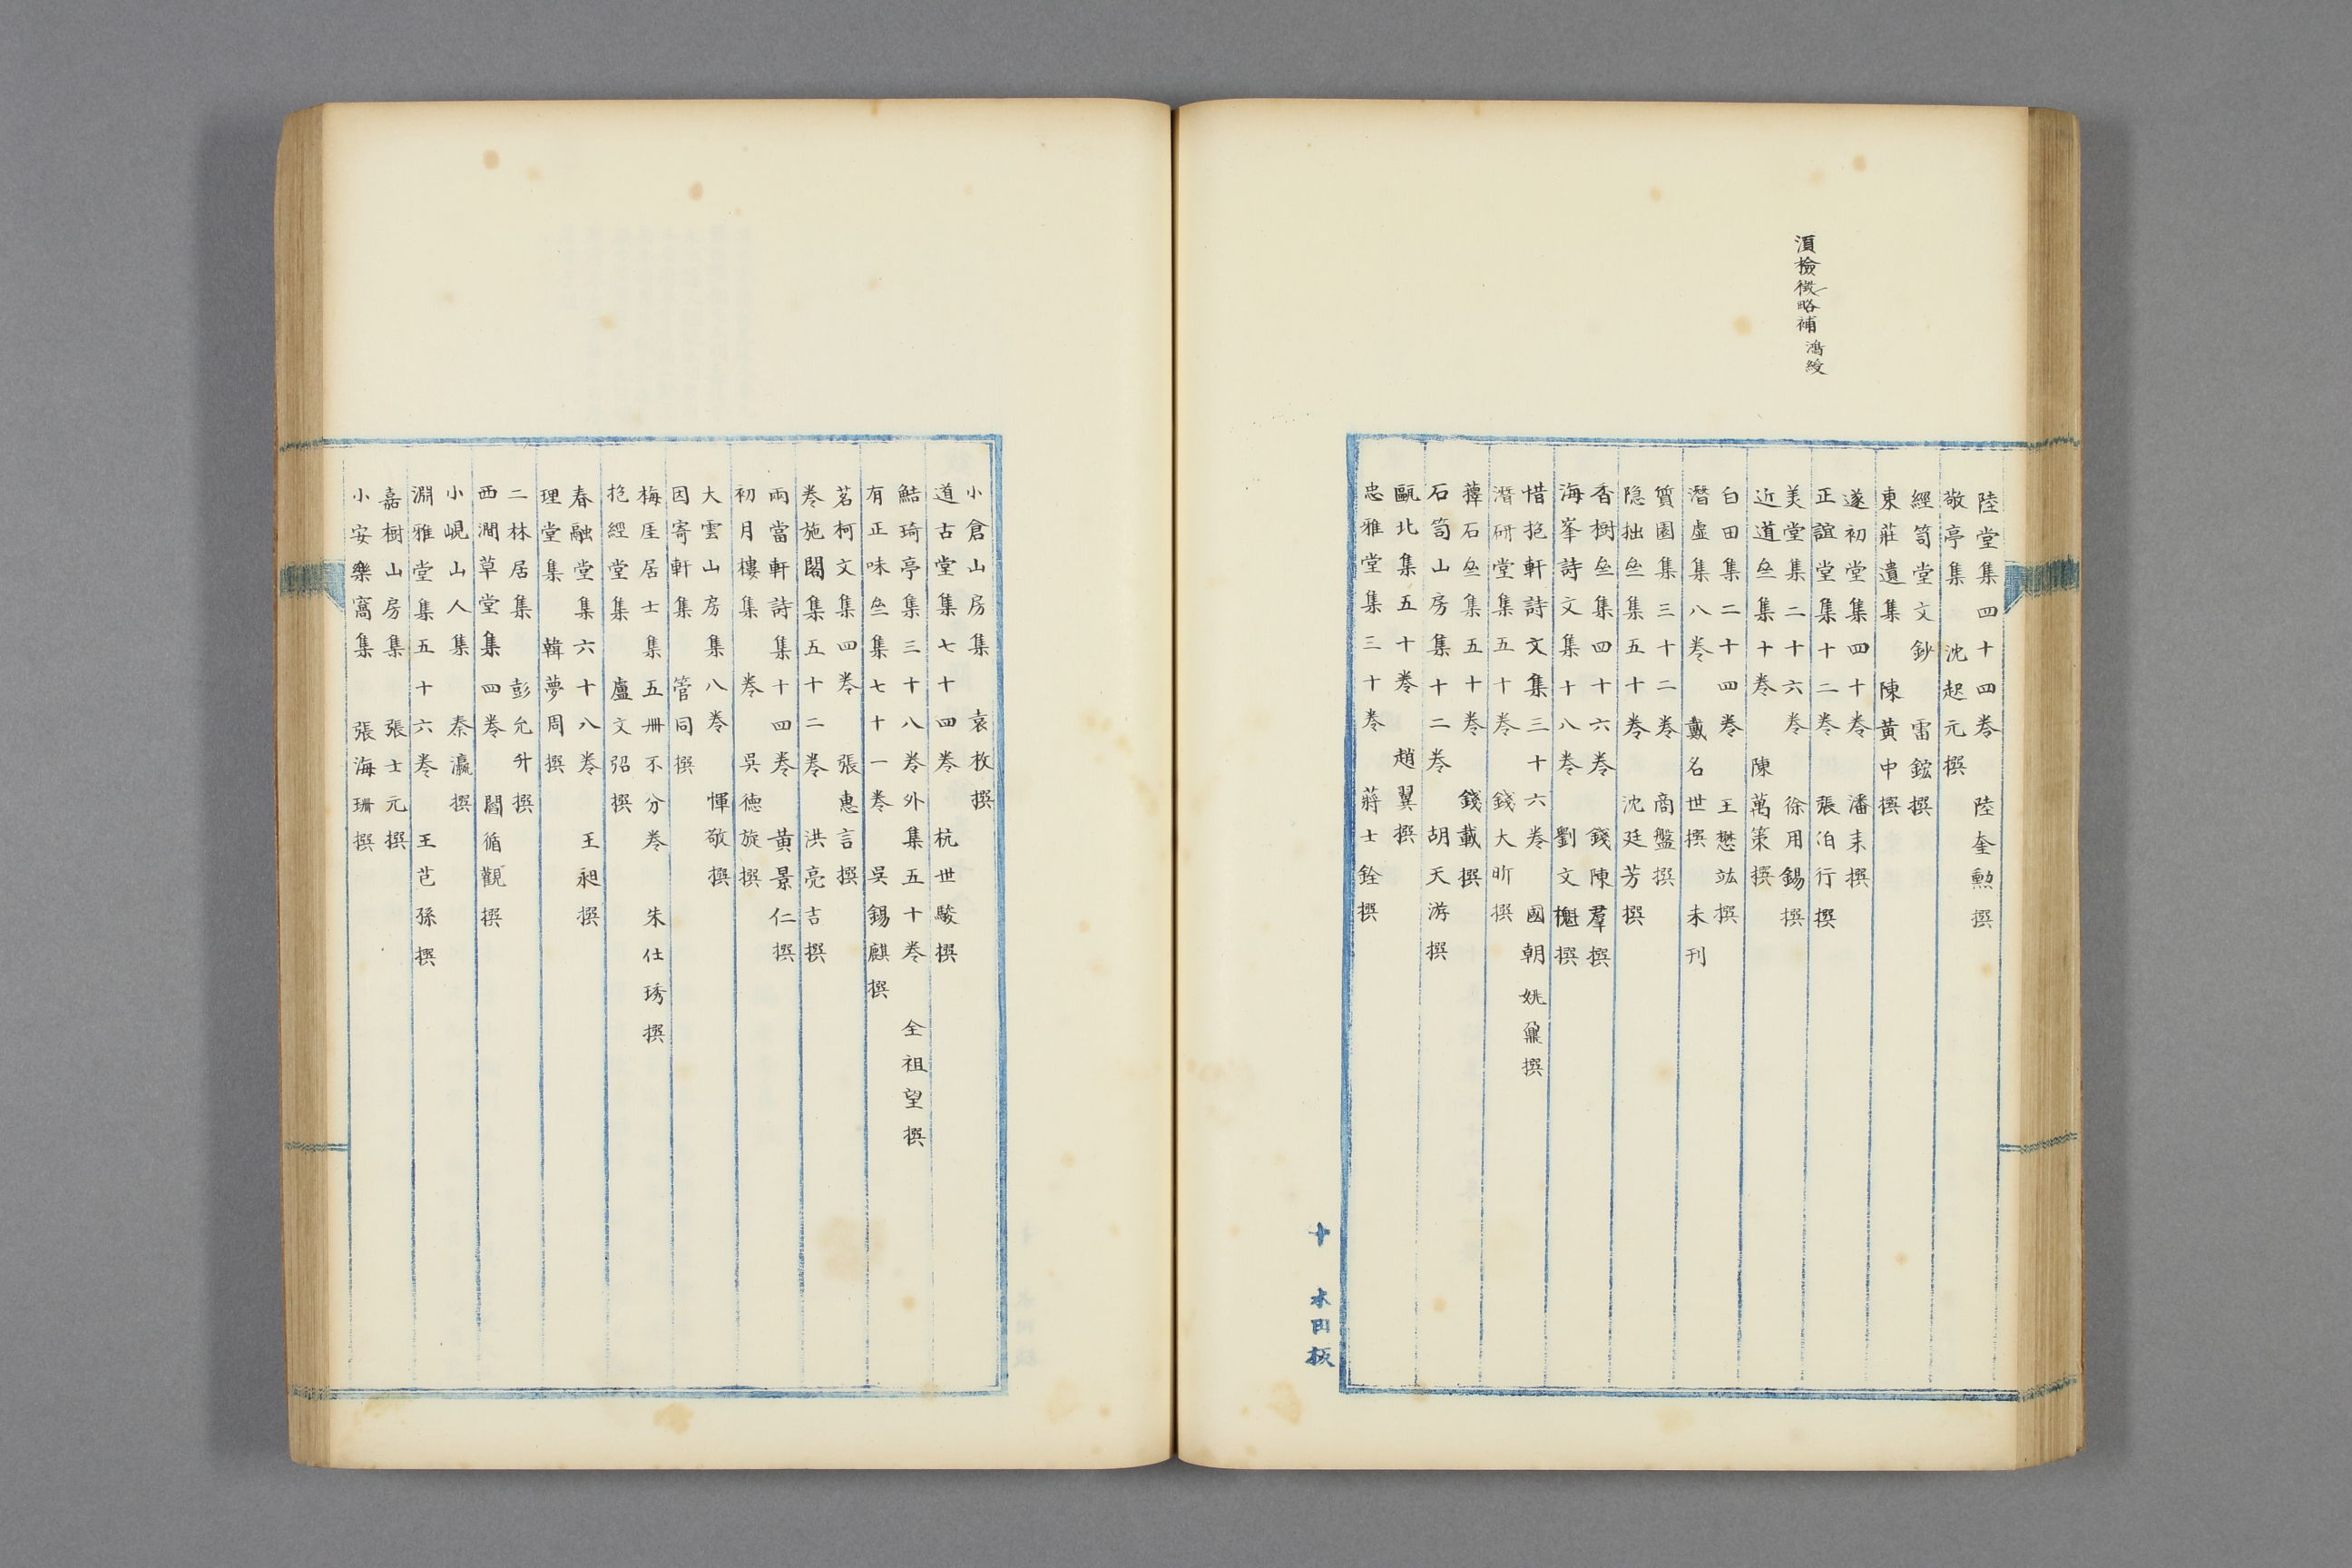 須檢徵略補 鴻綬
陸堂集四十四卷 陸奎勲撰
敬亭集 沈起元撰
經笥堂文鈔 雷鋐撰
東莊遺集 陳黃中撰
遂初堂集四十卷 潘耒撰
正誼堂集十二卷 張伯行撰
美堂集二十六卷 徐用錫撰
近道亝集十卷 陳萬策撰
白田集二十四卷 王懋竑撰
潛虛集八卷 戴名世撰 未刊
質園集三十二卷 商盤撰
隐拙亝集五十卷 沈廷芳撰
香樹亝集四十六卷 錢陳羣撰
海峯詩文集十八卷 劉文櫆撰
惜抱軒詩文集三十六卷 國朝姚鼐撰
潛研堂集五十卷 錢大昕撰
蘀石亝集五十卷 錢載撰
石笥山房集十二卷 胡天游撰
甌北集五十卷 趙翼撰
忠雅堂集三十卷 蔣士銓撰
十 木田板
小倉山房集 袁枚撰
道古堂集七十四卷 杭世駿撰
鮚琦亭集三十八卷外集五十卷 全祖望撰
有正味亝集七十一卷 吳錫麒撰
茗柯文集四卷 張惠言撰
卷施閣集五十二卷 洪亮吉撰
兩當軒詩集十四卷 黃景仁撰
初月樓集 卷 吳德旋撰
大雲山房集八卷 惲敬撰
因寄軒集 管同撰
梅厓居士集五册不分卷 朱仕琇撰
抱經堂集 盧文弨撰
春融堂集六十八卷 王昶撰
理堂集 韓夢周撰
二林居集 彭允升撰
西澗草堂集四卷 閻循觀撰
小峴山人集 秦瀛撰
淵雅堂集五十六卷 王芑孫撰
嘉樹山房集 張士元撰
小安樂窩集 張海珊撰